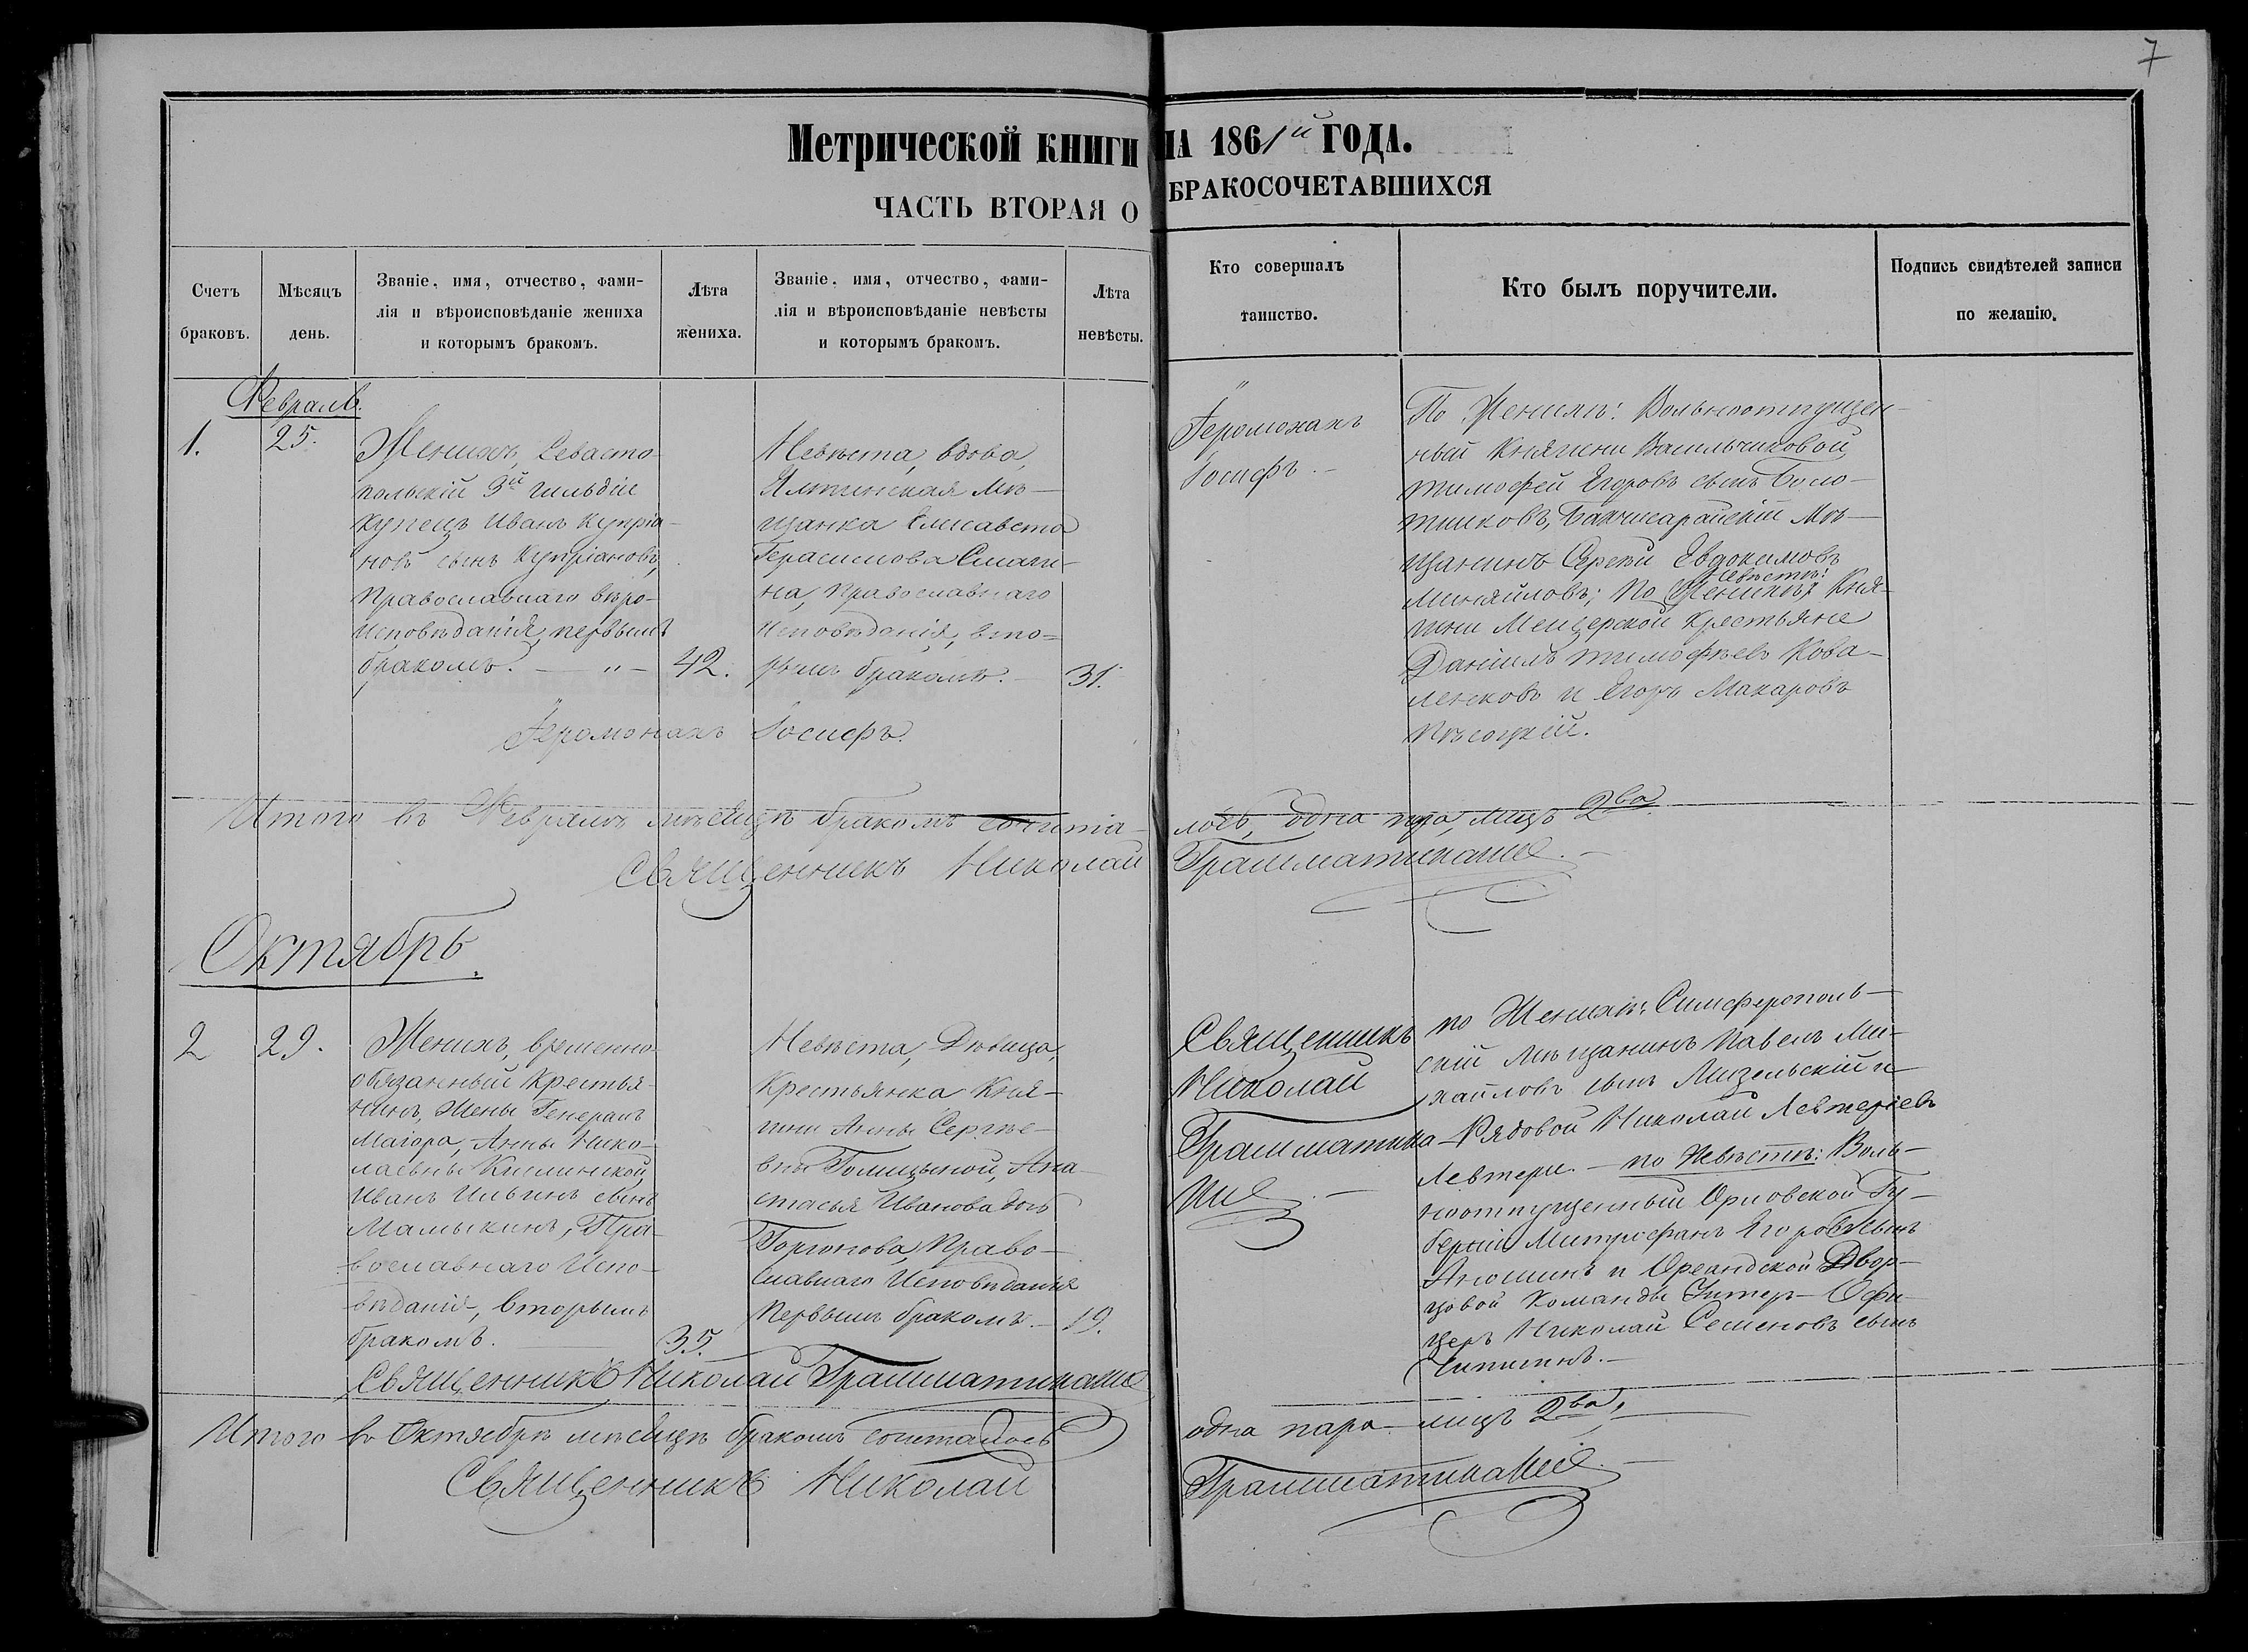 7
Метрической книги на 1861й ГОДА.
ЧАСТЬ ВТОРАЯ О БРАКОСОЧЕТАВШИХСЯ
Счетъ
браковъ.
Мѣсяцъ
день.
Званіе, имя, отчество, фами-
лія и вѣроисповѣданіе жениха
и которымъ бракомъ.
Лѣта
жениха.
Званіе, имя, отчество, фами-
лія и вѣроисповѣданіе невѣсты
и которымъ бракомъ.
Лѣта
невѣсты.
Кто совершалъ
таинство.
Кто былъ поручители.
Подпись свидѣтелей записи
по желанію.
Февраль.
1.
25.
Женихъ, Севасто-
польскій 3й гильдіи
купецъ Иванъ Купріа-
новъ сынъ Купріановъ,
Православнаго вѣро-
исповѣданія, первымъ
бракомъ. — „ —
42.
Невѣста, вдова,
Ялтинская Мѣ-
щанка Елисавета
Герасимова
на, Православнаго
исповѣданія, вто-
рымъ бракомъ. —
31.
Іеромонахъ
Іосифъ. —
По Женихѣ: Вольноотпущен-
ный Княгини Васильчиковой
тимофей Егоровъ сынъ Боло-
тниковъ, Бакчисарайскій Мѣ-
щанинъ Сергѣй Евдокимовъ
Миняйловъ; по Невѣстѣ: Кня-
гини Мещерской Крестьяне
Даніилъ тимофѣевъ Кова-
ленковъ и Егоръ Макаровъ
Пѣсоцкій.
Іеромонахъ Іосифъ.
Итого въ Февралѣ мѣсяцѣ бракомъ сочита-лось, одна пара, лицъ 2ва.
Священникъ Николай Грамматикаки. —
Октябрь.
2
29.
Женихъ, временно-
обязанный Крестья-
нинъ, Жены Генералъ
Маіора, Анны Нико-
лаевны
Иванъ Ильинъ сынъ
Малыкинъ, Пра-
вославнаго Испо-
вѣданія, вторымъ
бракомъ.
35.
Невѣста, Дѣвица,
Крестьянка Кня-
гини Анны Сергѣе-
вны Голицыной, Ана-
стасья Иванова дочь
Горгонова, Право-
славнаго Исповѣданія
Первымъ бракомъ. —
19.
Священникъ
Николай
Грамматика-
ки. —
по Женихѣ: Симферополь-
скій Мѣщанинъ Павелъ Ми-
хайловъ сынъ Мизельскій и
Рядовой Николай Левтеріевъ
Левтери. — по Невѣстѣ: Воль-
ноотпущенный Орловской Гу-
берніи Митрофанъ Егоровъ сынъ
Аношинъ и Ореандской Двор-
цовой Команды Унтеръ-Офи-
церъ Николай Семеновъ сынъ
Священникъ Николай Грамматикаки
Итого въ Октябрѣ мѣсяцѣ бракомъ сочеталось одна пара лицъ 2ва.
Священникъ Николай Грамматикаки. —